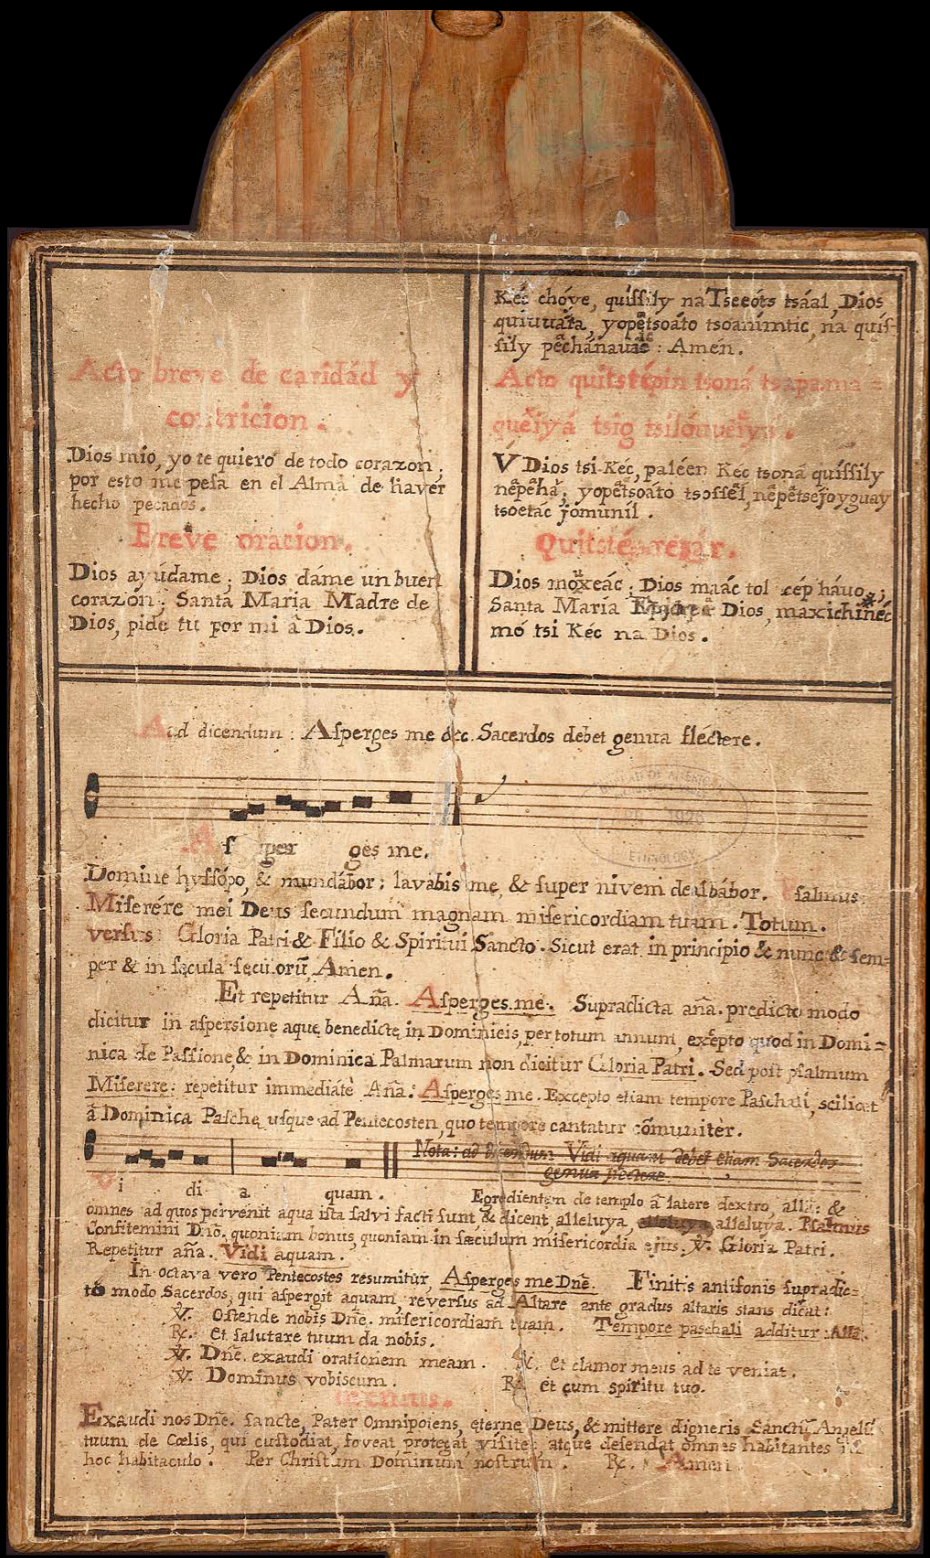 Acto breve de caridád y
contricion.
Dios mio, yo te quiero de todo corazon;
por esto me pesa en el Alma de haver
hecho pecados.
Breve oracion.
Dios ayúdame; Dios dáme un buen
corazón; Santa Maria Madre de
Dios, pide tu por mi à Dios.
Kéc chóye, quíſſily na Tseeóts tsáal, Dios
yopětsoáto tsoanimtic, na quiſ-
ſily : Amén.
Acto quitstépin tsoná tsapama=
tsig
V Dios tsi-Kéc, paléen Kéc tsoná quíſſily
něpěhá; yopětsoáto tsoſſěl, nepětsejoyguay
tsoetác jómunil.
Quitsté
Dios Dios maác tol cép háuo
Santa Maria Dios, maxichinéc
mó tsi Kéc na Dios.
Ad dicendum: Aſperges me &c. Sacerdos debet genua fléctere.
BUREAU OF AMERICAN
ETHNOLOGY
Aſ per ges me.
Domine hyſſópo, & mundábor; lavábis me, & ſuper nivem dealbábor. Pſalmus.
Miſerére mei Deus ſecundum magnam miſericordiam tuam. Totum.
verſus: Gloria Patri & Filio & Spiritui Sancto. Sicut erat in principio & nunc & ſem=
per & in ſęcula ſęculorũ Amen.
Et repetitur Aña. Aſperges me. Supradicta aña. predicto modo
dicitur in aſpersione aquę benedictę in Dominicis, per totum annum, excepto quod in Domi=
nica de Paſſione, & in Dominica Palmarum non dicitur Gloria Patri. Sed poſt pſalmum
Miſerere: repetitur immediatè Aña: Aſperges me. Excepto etiam tempore Paſchali, scilicet
â Dominica Paſche uſque ad Pentecosten, quo tempore cantatur cõmunitèr.
Nota: ad dicendum Vidi aquam debet etiam Sacerdos
genua flectere.
Vi di a quam.
Egredientem de templo â latere dextro, allã: &
omnes ad quos pervenit aqua iſta ſalvi facti ſunt, & dicent, alleluya, alleluya, alleluya. Pſalmus
Confitemini Dño. quoniam bonus, quoniam in ſæculum miſericordia ejus. ℣. Gloria Patri.
Repetitur aña. Vidi aquam.
In octava vero Pentecostes resumitur, Aſperges me Dñe. Finitis antifonis ſupradic=
to modo Sacerdos, qui aſpergit aquam, reverſus ad Altare ante gradus altaris stans dicat:
℣. Oſtende nobis Dñe. miſericordiam tuam. Tempore paschali additur: Allã.
℟. Et ſalutare tuum da nobis.
℣. Dñe. exaudi orationem meam. ℟. Et clamor meus ad te veniat.
℣. Dominus vobiscum. ℟. Et cum spiritu tuo.
Oremus.
Exaudi nos Dñe. ſancte, Pater Omnipotens, ęterne Deus, & mittere digneris Sanctũ Angelũ
tuum de Cœlis, qui cuſtodiat, foveat protegat, viſitet, atque defendat omnes habitantes in
hoc habitaculo. Per Chriſtum Dominum noſtrum. ℟. Amen.